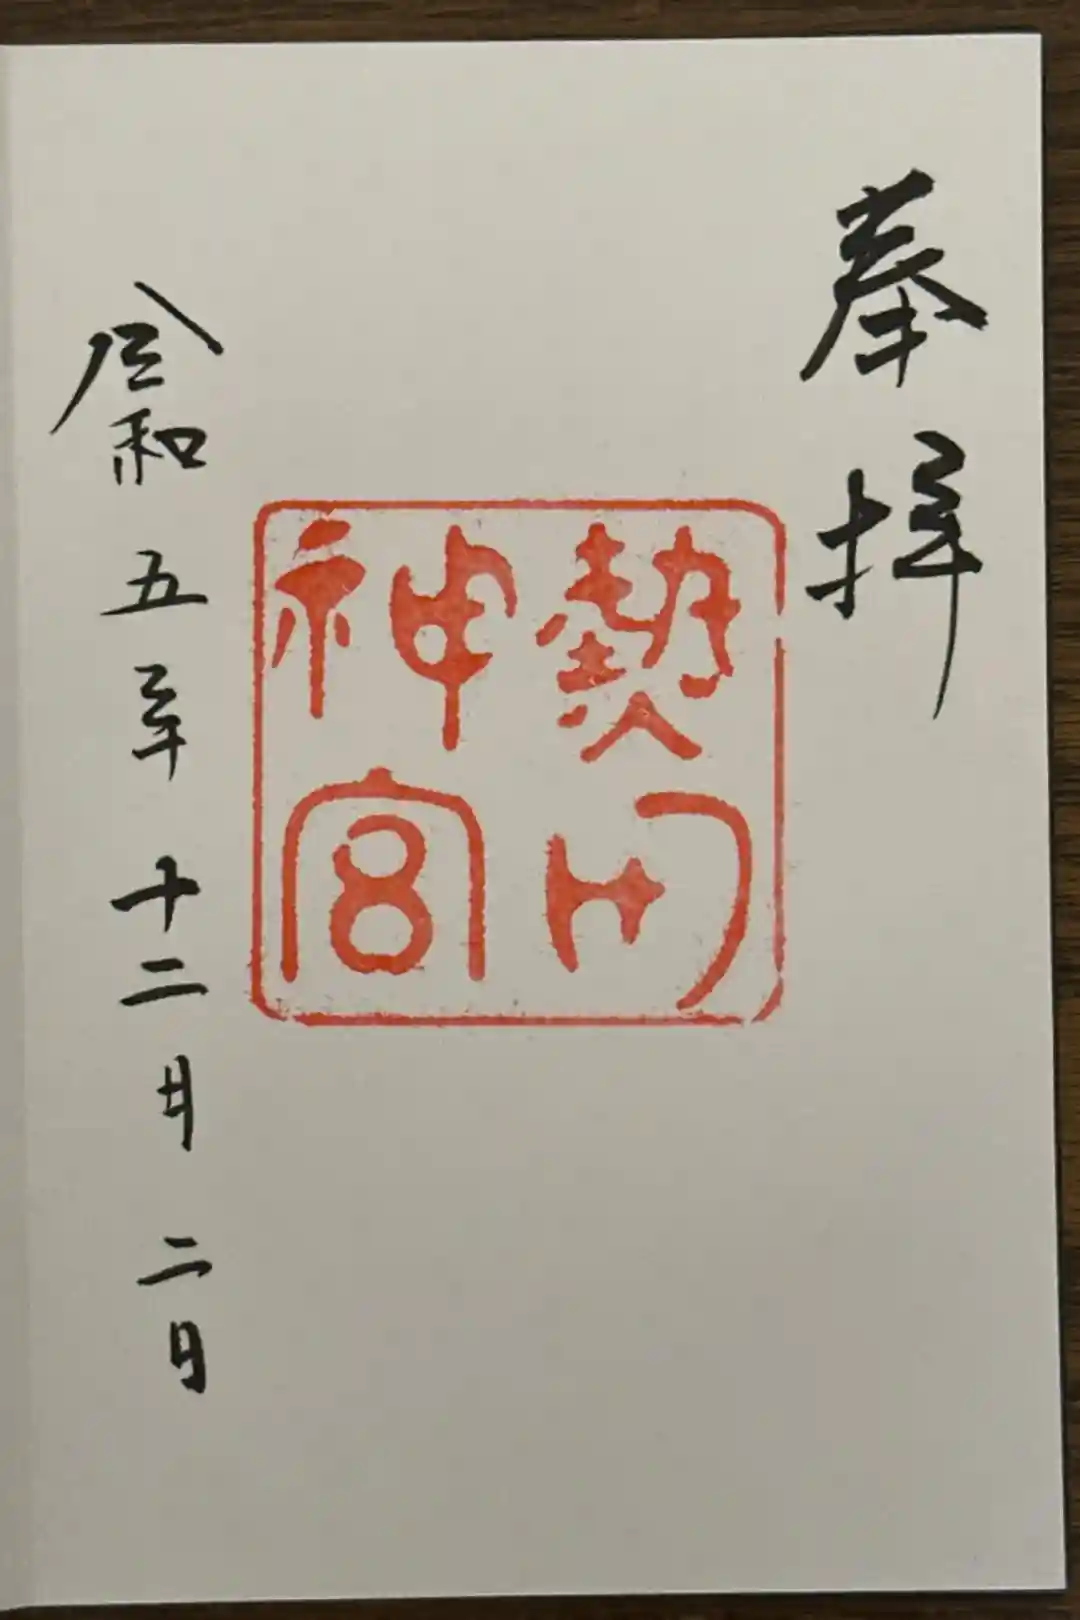 奉拝
熱田
神宮
令和五年十二月二日